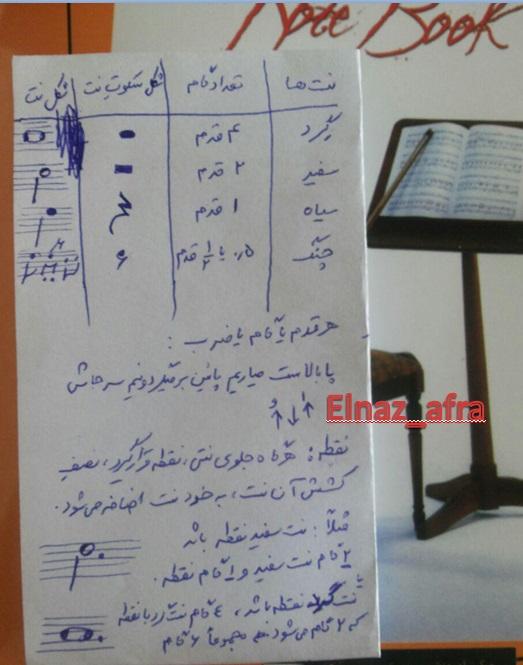 Note Book
نت‌ها تعداد گام شکل سکوت نت شکل نت
گرد ۴ قدم
سفید ۲ قدم
سیاه ۱ قدم
چنگ ۰٫۵ یا ۱/۲ قدم
هر قدم یا گام یا ضرب :
پا بالاست میاریم پائین برمیگردونیم سر جاش
Elnaz_afra
نقطه: هرگاه جلوی نتی، نقطه قرار گیرد، نصف
کشش آن نت، به خود نت اضافه می‌شود.
مثلاً : نت سفید نقطه باشد
۲ گام نت سفید و ۱ گام نقطه.
یا
نت گرد نقطه باشد، ۴ گام نت گرد با نقطه
که ۲ گام می‌شود مجموعاً ۶ گام